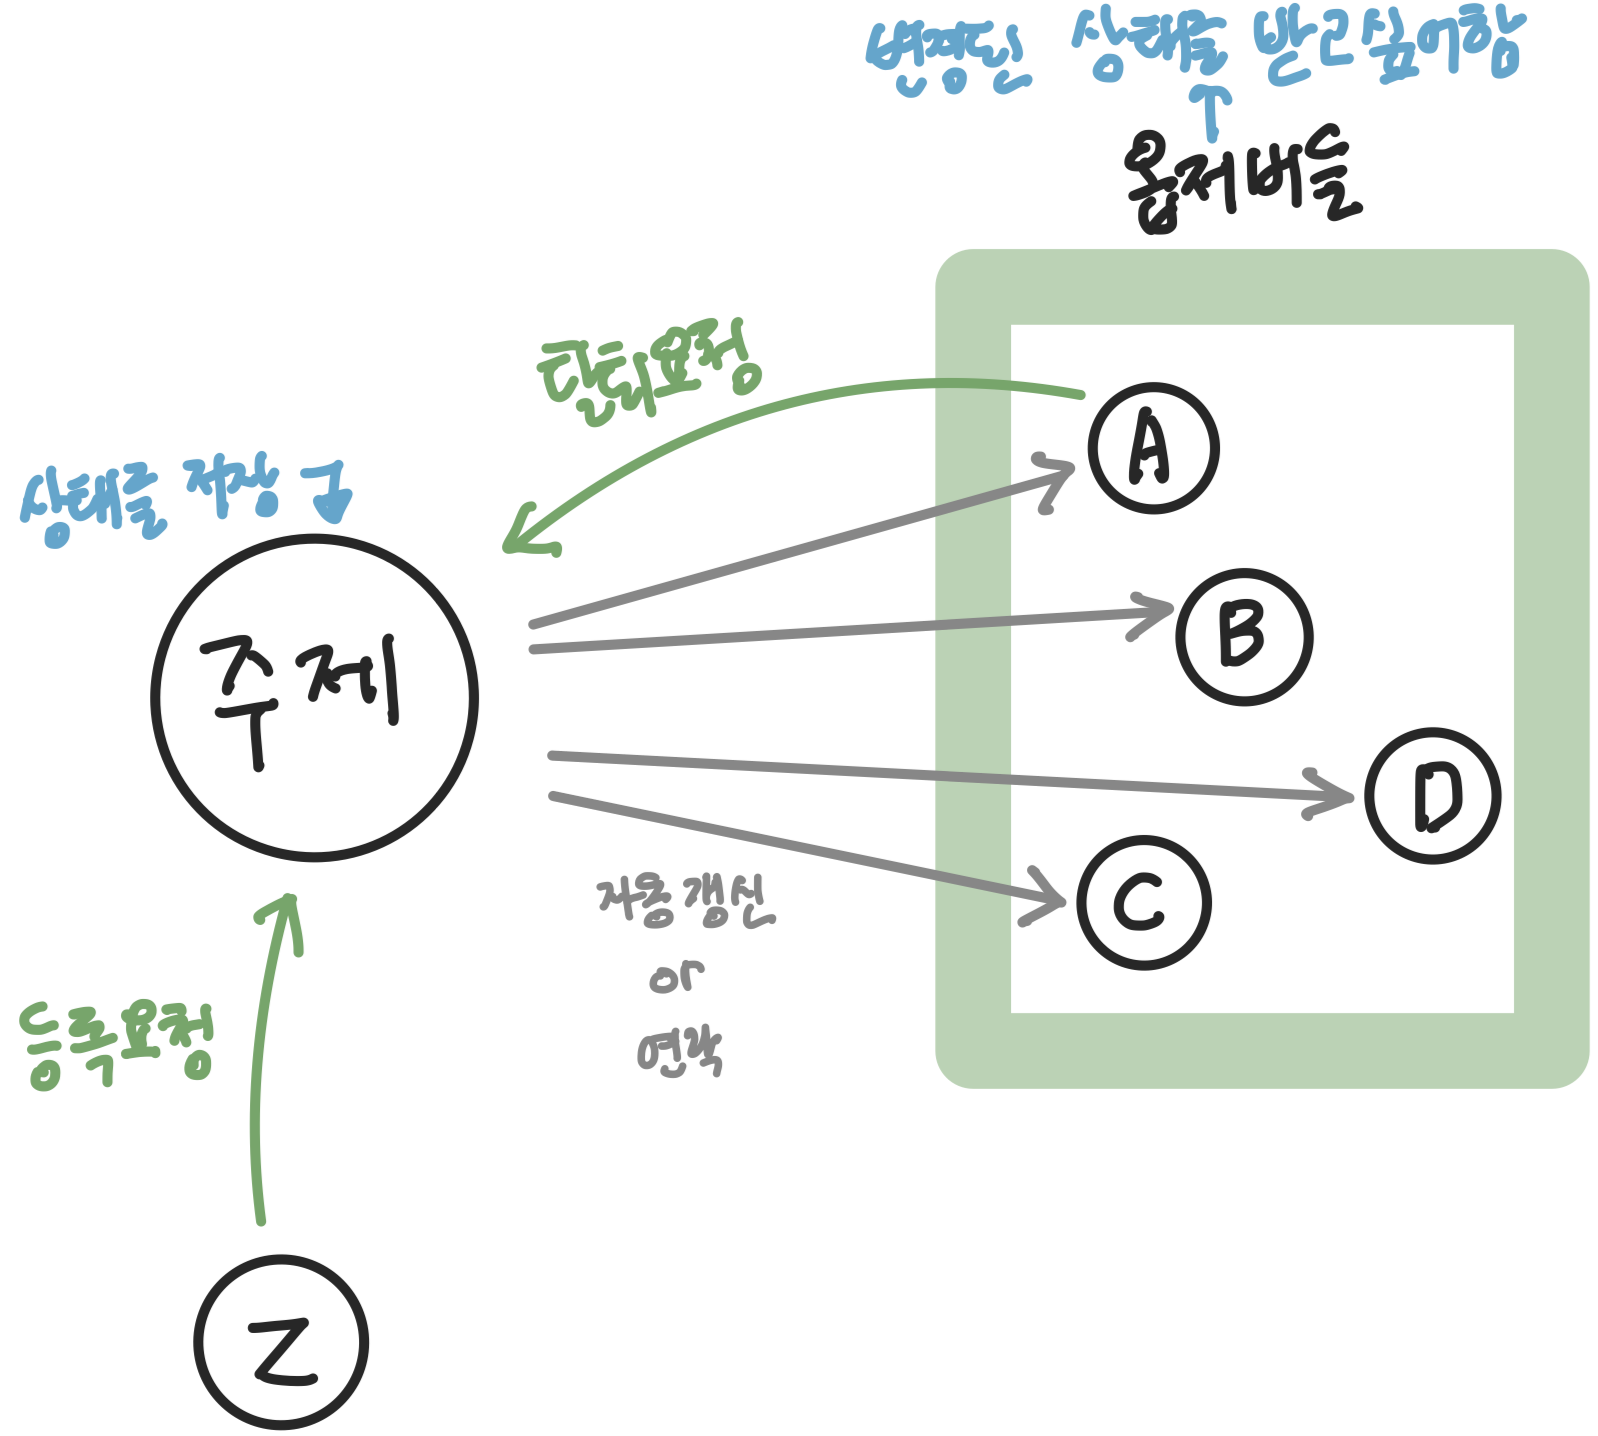 변경된 상태를 받고싶어함
옵저버들
탈퇴요청
A
상태를 저장
B
주제
D
C
자동 갱신
or
연락
등록요청
Z